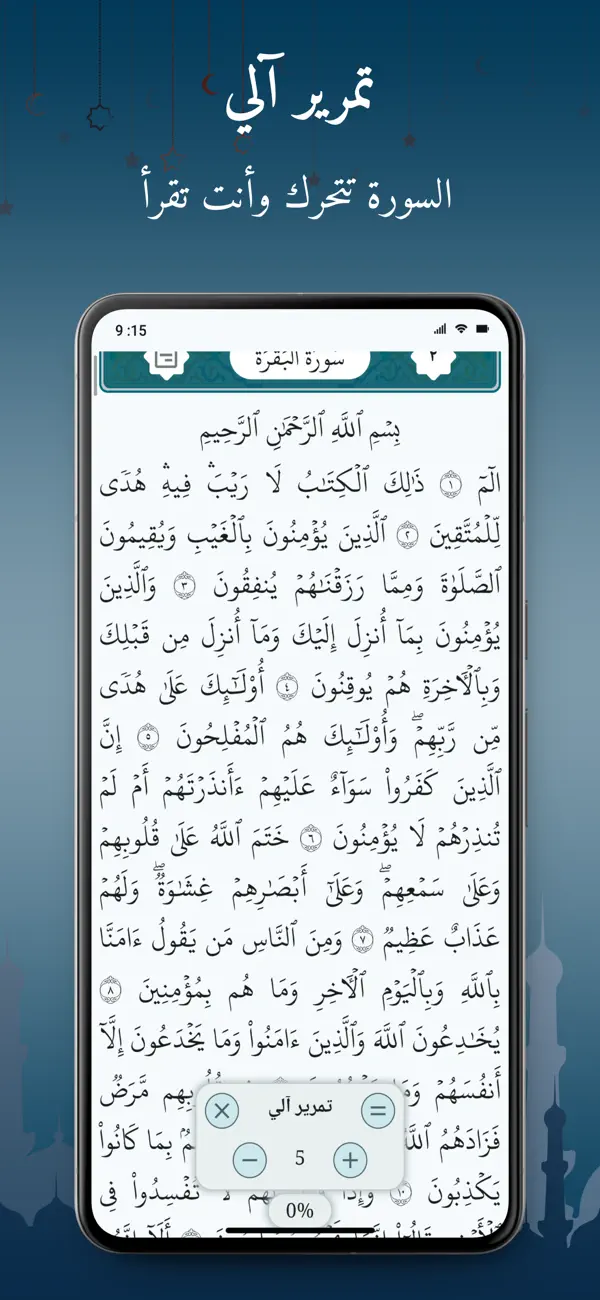 تمرير آلي
السورة تتحرك وأنت تقرأ
9:15
سورة البقرة
٢
بِسْمِ ٱللَّهِ ٱلرَّحْمَٰنِ ٱلرَّحِيمِ
الٓمٓ ١ ذَٰلِكَ ٱلْكِتَٰبُ لَا رَيْبَۛ فِيهِۛ هُدًى
لِّلْمُتَّقِينَ ٢ ٱلَّذِينَ يُؤْمِنُونَ بِٱلْغَيْبِ وَيُقِيمُونَ
ٱلصَّلَوٰةَ وَمِمَّا رَزَقْنَٰهُمْ يُنفِقُونَ ٣ وَٱلَّذِينَ
يُؤْمِنُونَ بِمَآ أُنزِلَ إِلَيْكَ وَمَآ أُنزِلَ مِن قَبْلِكَ
وَبِٱلْءَاخِرَةِ هُمْ يُوقِنُونَ ٤ أُو۟لَٰٓئِكَ عَلَىٰ هُدًى
مِّن رَّبِّهِمْۖ وَأُو۟لَٰٓئِكَ هُمُ ٱلْمُفْلِحُونَ ٥ إِنَّ
ٱلَّذِينَ كَفَرُوا۟ سَوَآءٌ عَلَيْهِمْ ءَأَنذَرْتَهُمْ أَمْ لَمْ
تُنذِرْهُمْ لَا يُؤْمِنُونَ ٦ خَتَمَ ٱللَّهُ عَلَىٰ قُلُوبِهِمْ
وَعَلَىٰ سَمْعِهِمْۖ وَعَلَىٰٓ أَبْصَٰرِهِمْ غِشَٰوَةٌۖ وَلَهُمْ
عَذَابٌ عَظِيمٌ ٧ وَمِنَ ٱلنَّاسِ مَن يَقُولُ ءَامَنَّا
بِٱللَّهِ وَبِٱلْيَوْمِ ٱلْءَاخِرِ وَمَا هُم بِمُؤْمِنِينَ ٨
يُخَٰدِعُونَ ٱللَّهَ وَٱلَّذِينَ ءَامَنُوا۟ وَمَا يَخْدَعُونَ إِلَّآ
أَنفُسَهُمْ مَّرَضٌ
فَزَادَهُمُ بِمَا كَانُوا۟
يَكْذِبُونَ ١٠ لَا تُفْسِدُوا۟ فِى
تمرير آلي
5
0%